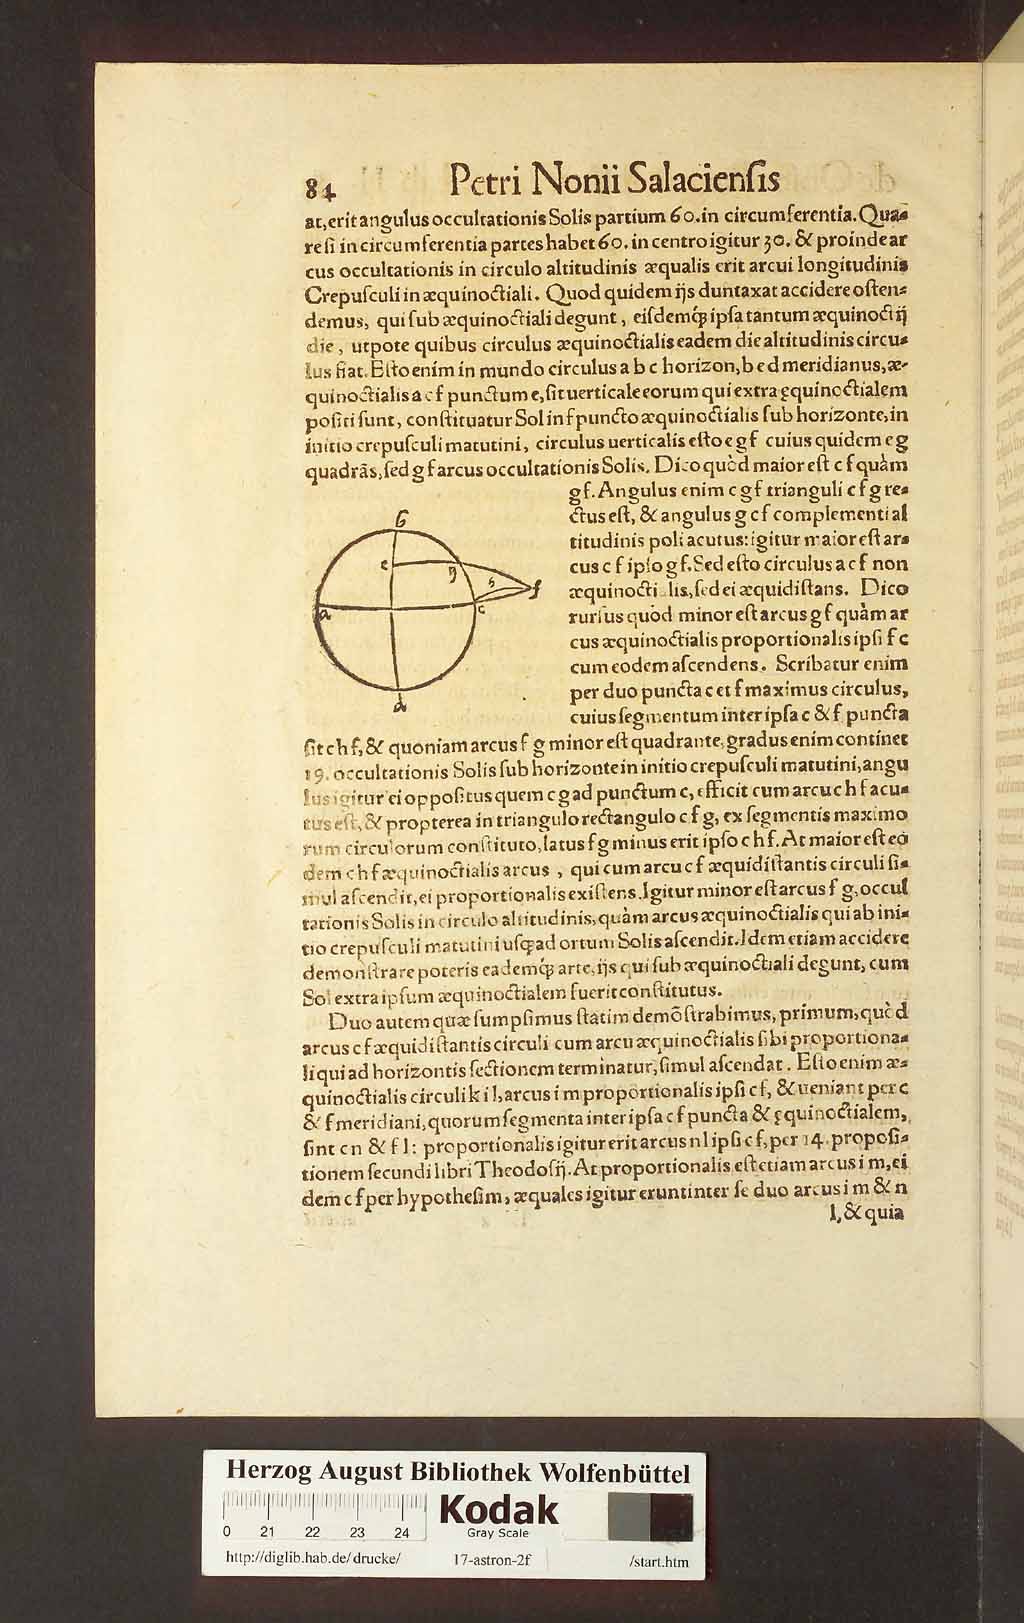 84 Petri Nonii Salaciensis
at, erit angulus occultationis Solis partium 60. in circumferentia. Qua-
re si in circumferentia partes habet 60. in centro igitur 30. & proinde ar
cus occultationis in circulo altitudinis æqualis erit arcui longitudinis
Crepusculi in æquinoctiali. Quod quidem ijs duntaxat accidere osten-
demus, qui sub æquinoctiali degunt, eisdemq́; ipsa tantum æquinoctij
die, utpote quibus circulus æquinoctialis eadem die altitudinis circu-
lus fiat. Esto enim in mundo circulus a b c horizon, b e d meridianus, æ-
quinoctialis a c f punctum e, sit uerticale eorum qui extra ęquinoctialem
positi sunt, constituatur Sol in f puncto æquinoctialis sub horizonte, in
initio crepusculi matutini, circulus uerticalis esto e g f cuius quidem e g
quadrãs, sed g f arcus occultationis Solis. Dico quòd maior est c f quàm
g f. Angulus enim c g f trianguli c f g re-
ctus est, & angulus g c f complementi al
titudinis poli acutus: igitur maior est ar-
cus c f ipso g f. Sed esto circulus a c f non
æquinoctialis, sed ei æquidistans. Dico
rursus quòd minor est arcus g f quàm ar
cus æquinoctialis proportionalis ipsi f c
cum eodem ascendens. Scribatur enim
per duo puncta c et f maximus circulus,
cuius segmentum inter ipsa c & f puncta
b
e
g
h
f
a
c
d
sit c h f, & quoniam arcus f g minor est quadrante, gradus enim continet
19. occultationis Solis sub horizonte in initio crepusculi matutini, angu
lus igitur ei oppositus quem c g ad punctum c, efficit cum arcu c h f acu-
tus est, & propterea in triangulo rectangulo c f g, ex segmentis maximo
rum circulorum constituto, latus f g minus erit ipso c h f. At maior est eo
dem c h f æquinoctialis arcus, qui cum arcu c f æquidistantis circuli si-
mul ascendit, ei proportionalis existens. Igitur minor est arcus f g, occul
tationis Solis in circulo altitudinis, quàm arcus æquinoctialis qui ab ini-
tio crepusculi matutini usq; ad ortum Solis ascendit. Idem etiam accidere
demonstrare poteris eademq́; arte, ijs qui sub æquinoctiali degunt, cum
Sol extra ipsum æquinoctialem fuerit constitutus.
Duo autem quæ sumpsimus statim demõstrabimus, primum, quòd
arcus c f æquidistantis circuli cum arcu æquinoctialis sibi proportiona-
li qui ad horizontis sectionem terminatur, simul ascendat. Esto enim æ-
quinoctialis circuli k i l, arcus i m proportionalis ipsi c f, & ueniant per c
& f meridiani, quorum segmenta inter ipsa c f puncta & ęquinoctialem,
sint c n & f l: proportionalis igitur erit arcus n l ipsi c f, per 14. proposi-
tionem secundi libri Theodosij. At proportionalis est etiam arcus i m, ei
dem c f per hypothesim, æquales igitur erunt inter se duo arcus i m & n
l, & quia
Herzog August Bibliothek Wolfenbüttel
0 21 22 23 24
Kodak
Gray Scale
http://diglib.hab.de/drucke/ 17-astron-2f /start.htm